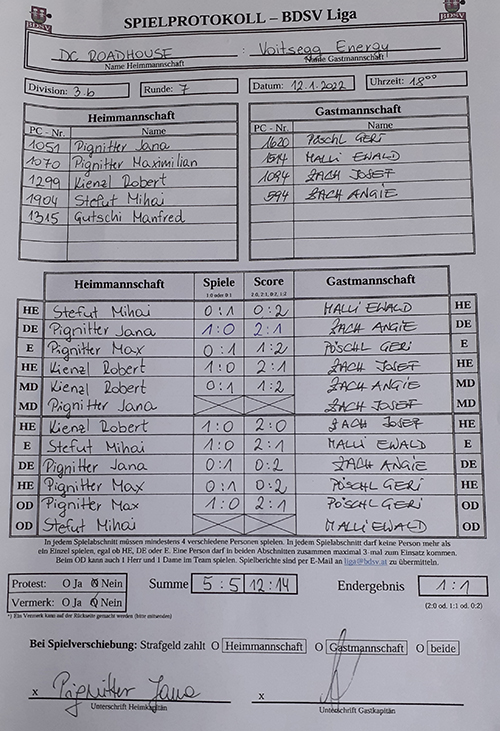 SPIELPROTOKOLL – BDSV Liga
BDSV BDSV
DC ROADHOUSE : Voitsegg Energy
Name Heimmannschaft Name Gastmannschaft
Division: 3.b Runde: 7 Datum: 12.1.2022 Uhrzeit: 18°°
Heimmannschaft Gastmannschaft
PC - Nr. Name PC - Nr. Name
1051 Pignitter Jana 1620 PÖSCHL GERI
1070 Pignitter Maximilian MALLI EWALD
1299 Kienzl Robert 1094 ZACH JOSEF
1904 Stefut Mihai 594 ZACH ANGIE
1315 Gutschi Manfred
Heimmannschaft Spiele Score Gastmannschaft
1:0 oder 0:1 2:0, 2:1, 0:2, 1:2
HE Stefut Mihai 0:1 0:2 MALLI EWALD HE
DE Pignitter Jana 1:0 2:1 ZACH ANGIE DE
E Pignitter Max 0:1 1:2 PÖSCHL GERI E
HE Kienzl Robert 1:0 2:1 ZACH JOSEF HE
MD Kienzl Robert 0:1 1:2 ZACH ANGIE MD
MD Pignitter Jana ZACH JOSEF MD
HE Kienzl Robert 1:0 2:0 ZACH JOSEF HE
E Stefut Mihai 1:0 2:1 MALLI EWALD E
DE Pignitter Jana 0:1 0:2 ZACH ANGIE DE
HE Pignitter Max 0:1 0:2 PÖSCHL GERI HE
OD Pignitter Max 1:0 2:1 PÖSCHL GERI OD
OD Stefut Mihai MALLI EWALD OD
In jedem Spielabschnitt müssen mindestens 4 verschiedene Personen spielen. In jedem Spielabschnitt darf keine Person mehr als
ein Einzel spielen, egal ob HE, DE oder E. Eine Person darf in beiden Abschnitten zusammen maximal 3-mal zum Einsatz kommen.
Beim OD kann auch 1 Herr und 1 Dame im Team spielen. Spielberichte sind per E-Mail an liga@bdsv.at zu übermitteln.
Protest: O Ja O Nein Summe 5:5 12:14 Endergebnis 1:1
Vermerk: O Ja O Nein (2:0 od. 1:1 od. 0:2)
*) Ein Vermerk kann auf der Rückseite gemacht werden (bitte mitsenden)
Bei Spielverschiebung: Strafgeld zahlt O Heimmannschaft O Gastmannschaft O beide
x Pignitter Jana x
Unterschrift Heimkapitän Unterschrift Gastkapitän